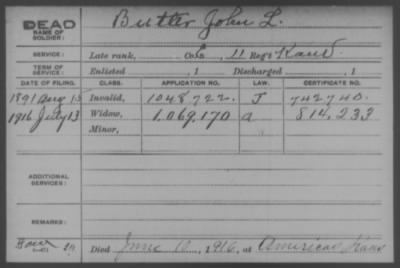 DEAD
NAME OF SOLDIER:
Butler John L.
SERVICE:
Late rank, Co. L, 11 Reg't Kans.
TERM OF SERVICE:
Enlisted , 1 Discharged , 1
DATE OF FILING. CLASS. APPLICATION NO. LAW. CERTIFICATE NO.
1891 Aug 15 Invalid, 1048722. J 742740.
1916 July 13 Widow, 1.069.170 a 814,233
Minor,
ADDITIONAL SERVICES:
REMARKS:
Died June 10, 1916, at Americus Kans